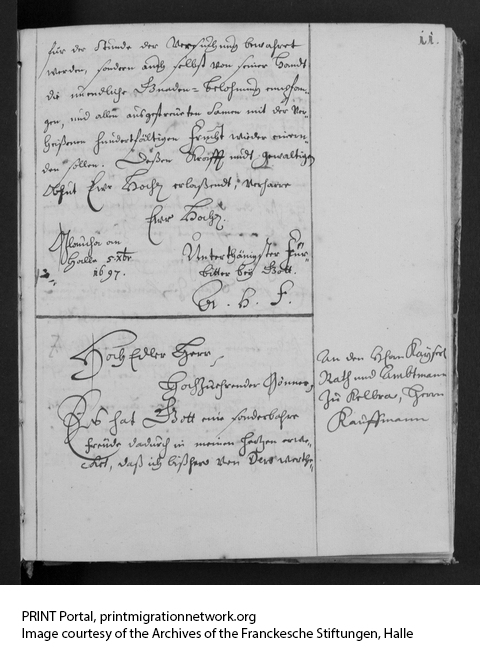 11.
für der Stunde der Versuchung bewahret
werden, sondern auch selbst von seiner Handt
die unendliche Gnaden-belohnung empfan-
gen, und allen ausgestreueten Samen mit der ver-
heißenen hundertfältigen Frucht wieder einern-
den sollen. Deßen Krafft und gewaltigen
Obhut Ewr Hochh erlaßendt, verharre
Ewr Hochh.
Glaucha an
Halle
1697.
Unterthänigster Für-
bitter bey Gott.
A. H. F.
Hoch Edler Herr,
Hochzuehrender Gönner,
Es hat Gott eine sonderbahre
freude dadurch in meinem Hertzen erwe-
cket, daß ich bißher von Dero werthe-
An den Kayserl
Rath und Ambtmann
Zu Kelbra, Herrn
Kauffmann
PRINT Portal, printmigrationnetwork.org
Image courtesy of the Archives of the Franckesche Stiftungen, Halle